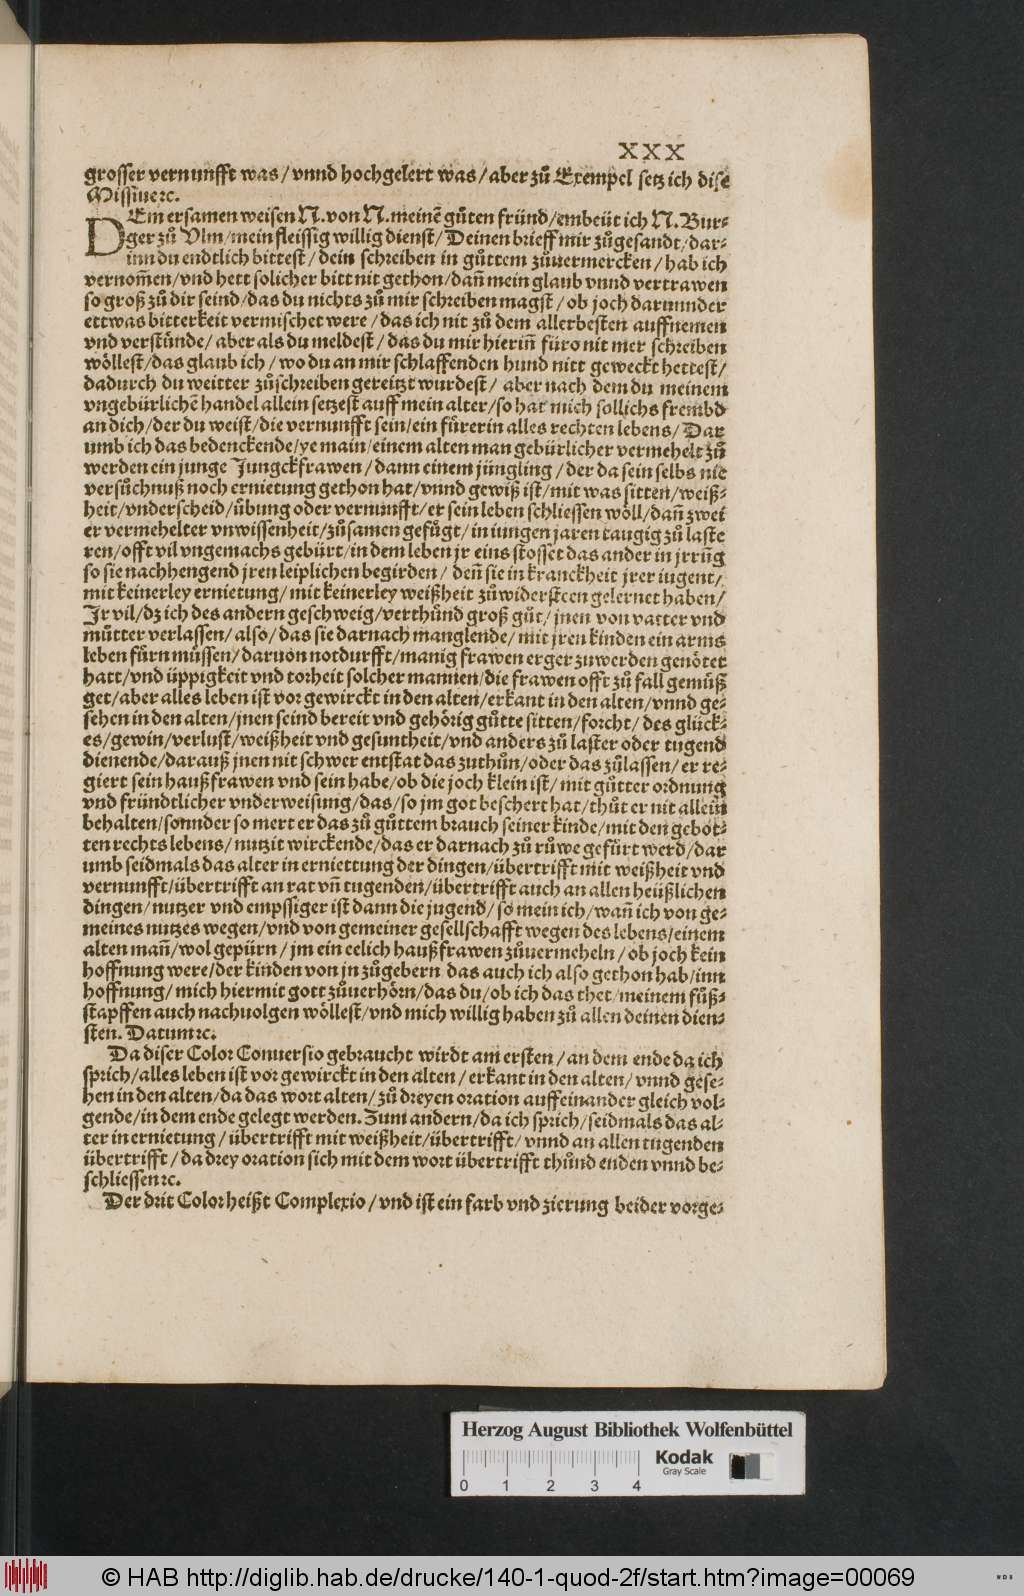 XXX
grosser vernunfft was / vnnd hochgelert was / aber zuͦ Exempel setz ich dise
Missiue ⁊c.
DEm ersamen weisen N. von N. meinē guͦten fründ / embeüt ich N. Bur⸗
ger zuͦ Vlm / mein fleissig willig dienst / Deinen brieff mir zuͦgesandt / dar⸗
inn du endtlich bittest / dein schreiben in guͦttem zuͦuermercken / hab ich
vernom̄en / vnd hett solicher bitt nit gethon / dan̄ mein glaub vnnd vertrawen
so groß zuͦ dir seind / das du nichts zuͦ mir schreiben magst / ob joch darunnder
ettwas bitterkeit vermischet were / das ich nit zuͦ dem allerbesten auffnemen
vnd verstünde / aber als du meldest / das du mir hierin̄ füro nit mer schreiben
wöllest / das glaub ich / wo du an mir schlaffenden hund nitt geweckt hettest /
dadurch du weitter zuͦschreiben gereitzt wurdest / aber nach dem du meinem
vngebürlichē handel allein setzest auff mein alter / so hat mich sollichs frembd
an dich / der du weist / die vernunfft sein / ein fürerin alles rechten lebens / Dar
umb ich das bedenckende / ye main / einem alten man gebürlicher vermehelt zuͦ
werden ein junge Jungckfrawen / dann einem jüngling / der da sein selbs nie
versuͦchnuß noch ernietung gethon hat / vnnd gewiß ist / mit was sitten / weiß⸗
heit / vnderscheid / übung oder vernunfft / er sein leben schliessen wöll / dan̄ zwei
er vermehelter vnwissenheit / zuͦsamen gefuͤgt / in iungen jaren taugig zuͦ laste
ren / offt vil vngemachs gebürt / in dem leben jr eins stosset das ander in jrrūg
so sie nachhengend jren leiplichen begirden / den̄ sie in kranckheit jrer iugent /
mit keinerley ernietung / mit keinerley weißheit zuͦwidersteen gelernet haben /
Jr vil / dz ich des andern geschweig / verthuͦnd groß guͦt / jnen von vatter vnd
muͦtter verlassen / also / das sie darnach manglende / mit jren kinden ein arms
leben fuͤrn muͤssen / daruon notdurfft / manig frawen erger zuwerden genötet
hatt / vnd üppigkeit vnd torheit solcher mannen / die frawen offt zuͦ fall gemuͤß
get / aber alles leben ist vor gewirckt in den alten / erkant in den alten / vnnd ge⸗
sehen in den alten / jnen seind bereit vnd gehörig guͦtte sitten / forcht / des glück⸗
es / gewin / verlust / weißheit vnd gesuntheit / vnd anders zuͦ laster oder tugend
dienende / darauß jnen nit schwer entstat das zuthuͦn / oder das zuͦlassen / er re⸗
giert sein haußfrawen vnd sein habe / ob die joch klein ist / mit guͦtter ordnung
vnd fründtlicher vnderweisung / das / so jm got beschert hat / thuͦt er nit allein
behalten / sonnder so mert er das zuͦ guͦttem brauch seiner kinde / mit den gebot⸗
ten rechts lebens / nutzit wirckende / das er darnach zuͦ ruͦwe gefürt werd / dar
umb seidmals das alter in erniettung der dingen / übertrifft mit weißheit vnd
vernunfft / übertrifft an rat vn̄ tugenden / übertrifft auch an allen heüßlichen
dingen / nutzer vnd empssiger ist dann die jugend / so mein ich / wan̄ ich von ge⸗
meines nutzes wegen / vnd von gemeiner gesellschafft wegen des lebens / einem
alten man̄ / wol gepürn / jm ein eelich haußfrawen zuͦuermeheln / ob joch kein
hoffnung were / der kinden von jn zuͦgebern das auch ich also gethon hab / inn
hoffnung / mich hiermit gott zuͦuerhörn / das du / ob ich das thet / meinem fuͦß⸗
stapffen auch nachuolgen wöllest / vnd mich willig haben zuͦ allen deinen dien⸗
sten. Datum ⁊c.
Da diser Color Conuersio gebraucht wirdt am ersten / an dem ende da ich
sprich / alles leben ist vor gewirckt in den alten / erkant in den alten / vnnd gese⸗
hen in den alten / da das wort alten / zuͦ dreyen oration auffeinander gleich vol⸗
gende / in dem ende gelegt werden. Zum andern / da ich sprich / seidmals das al⸗
ter in ernietung / übertrifft mit weißheit / übertrifft / vnnd an allen tugenden
übertrifft / da drey oration sich mit dem wort übertrifft thuͦnd enden vnnd be⸗
schliessen ⁊c.
Der drit Color heißt Complexio / vnd ist ein farb vnd zierung beider vorge⸗
Herzog August Bibliothek Wolfenbüttel
Kodak
Gray Scale
0 1 2 3 4
© HAB http://diglib.hab.de/drucke/140-1-quod-2f/start.htm?image=00069